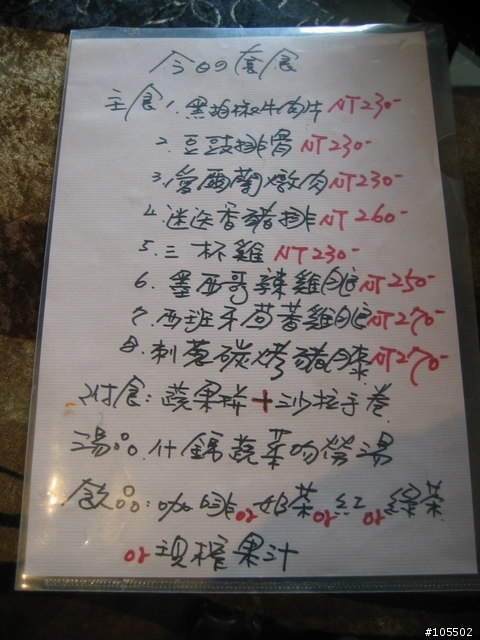 今日の套食
主食 1. 黑胡椒牛肉 NT230-
2. 豆豉排骨 NT230-
3. 愛爾蘭燉肉 NT230-
4. 迷迭香豬排 NT260-
5. 三杯雞 NT230-
6. 墨西哥辣雞腿 NT250-
7. 西班牙茴香雞腿 NT270-
8. 刺蔥碳烤豬膝 NT270-
附食: 蔬果拼+沙拉手卷
湯品. 什錦蔬菜
飲品: 咖啡or奶茶or紅or綠茶
or現榨果汁
#105502